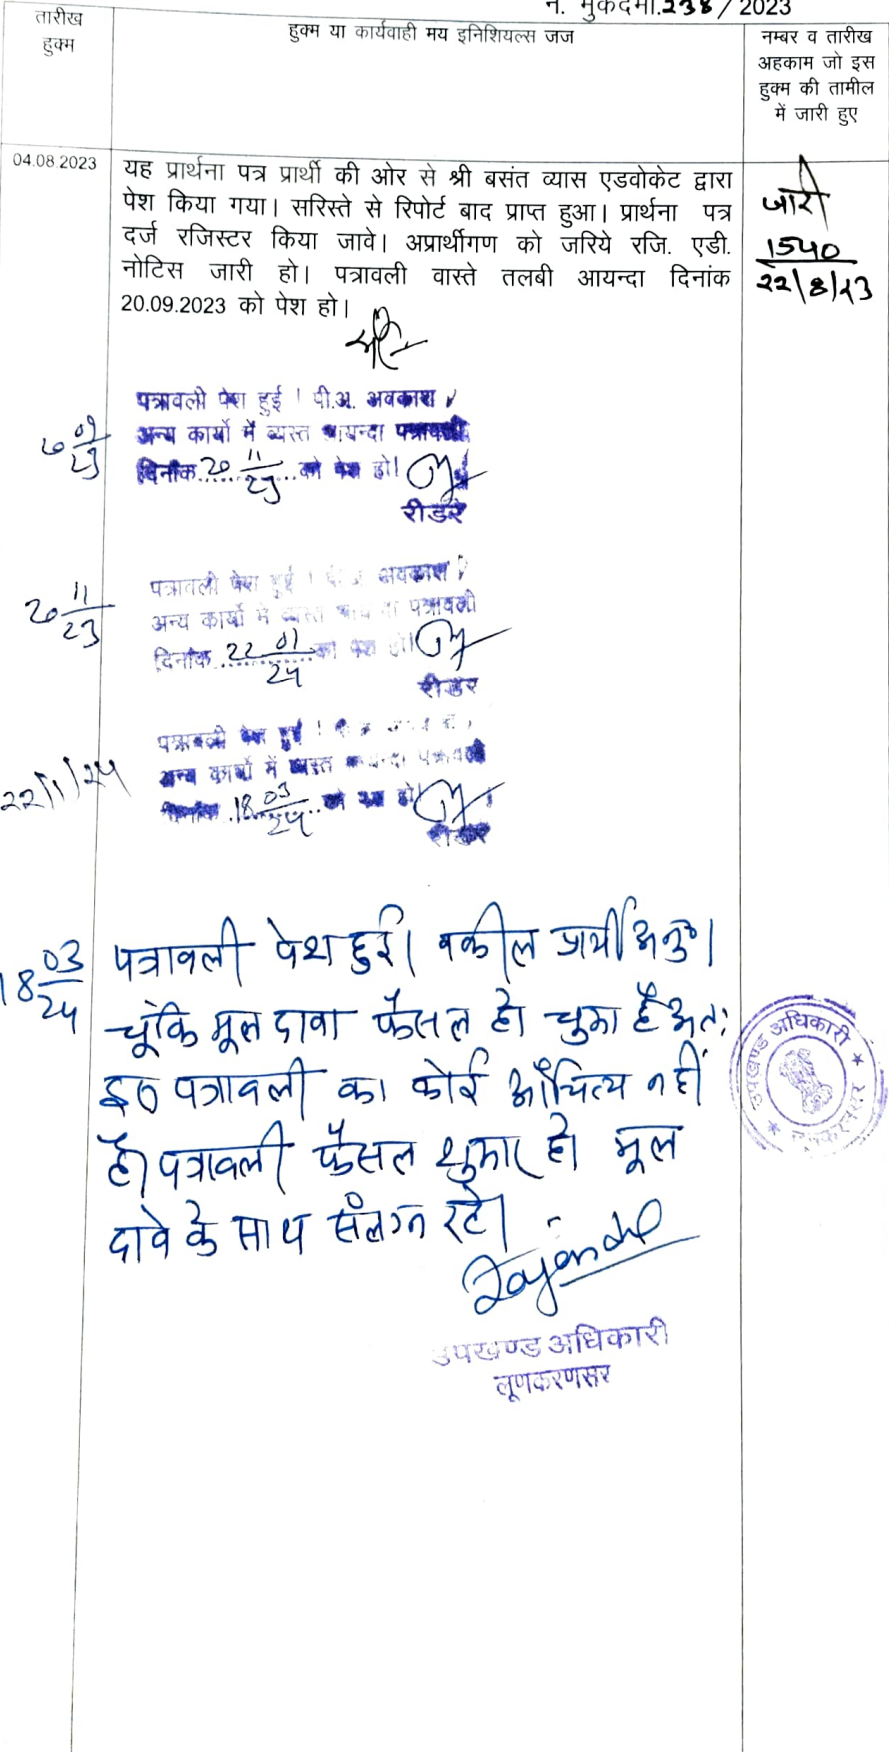 नं. मुकदमा.238/2023
तारीख
हुक्म
हुक्म या कार्यवाही मय इनिशियल्स जज
नम्बर व तारीख
अहकाम जो इस
हुक्म की तामील
में जारी हुए
04.08.2023
यह प्रार्थना पत्र प्रार्थी की ओर से श्री बसंत व्यास एडवोकेट द्वारा
पेश किया गया। सरिस्ते से रिपोर्ट बाद प्राप्त हुआ। प्रार्थना पत्र
दर्ज रजिस्टर किया जावे। अप्रार्थीगण को जरिये रजि. एडी.
नोटिस जारी हो। पत्रावली वास्ते तलबी आयन्दा दिनांक
20.09.2023 को पेश हो।
जारी
1540
22/8/23
पत्रावली पेश हुई । पी.अ. अवकाश /
अन्य कार्यो में व्यस्त आयन्दा पत्रावली
दिनांक 20 11/23 को पेश हो।
रीडर
20 11/23
पत्रावली पेश हुई । पी.अ. अवकाश /
अन्य कार्यो में व्यस्त आयन्दा पत्रावली
दिनांक 22 01/24 को पेश हो।
रीडर
22/1/24
पत्रावली पेश हुई !
अन्य कार्यो में व्यस्त आयन्दा पत्रावली
दिनांक 18 03/24 को पेश हो
रीडर
18 03/24
पत्रावली पेश हुई। वकील प्रार्थी अनु०।
चूंकि मूल दावा फैसल हो चुका है अतः
इस पत्रावली का कोई औचित्य नहीं
है। पत्रावली फैसल शुमार हो मूल
दावे के साथ संलग्न रहे।
उपखण्ड अधिकारी
लूणकरणसर
उपखण्ड अधिकारी
लूणकरनसर